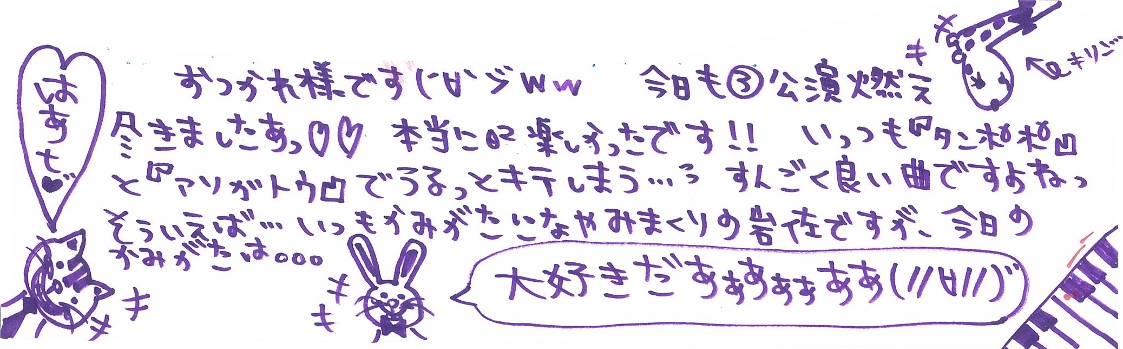 はあと♥
おつかれ様です(´∀`)ゞww 今日も③公演燃え
尽きましたあっ♡♡ 本当に 楽しかったです!! いっつも『タンポポ』
と『アリガトウ』でうるっとキテしまう…3 すんごく良い曲ですよねっ
そういえば…いつもかみがたになやみまくりの岩佐ですが、今日の
かみがたは。。。
大好きだあぁあぁぁああ(//∀//)ゞ
←キリン